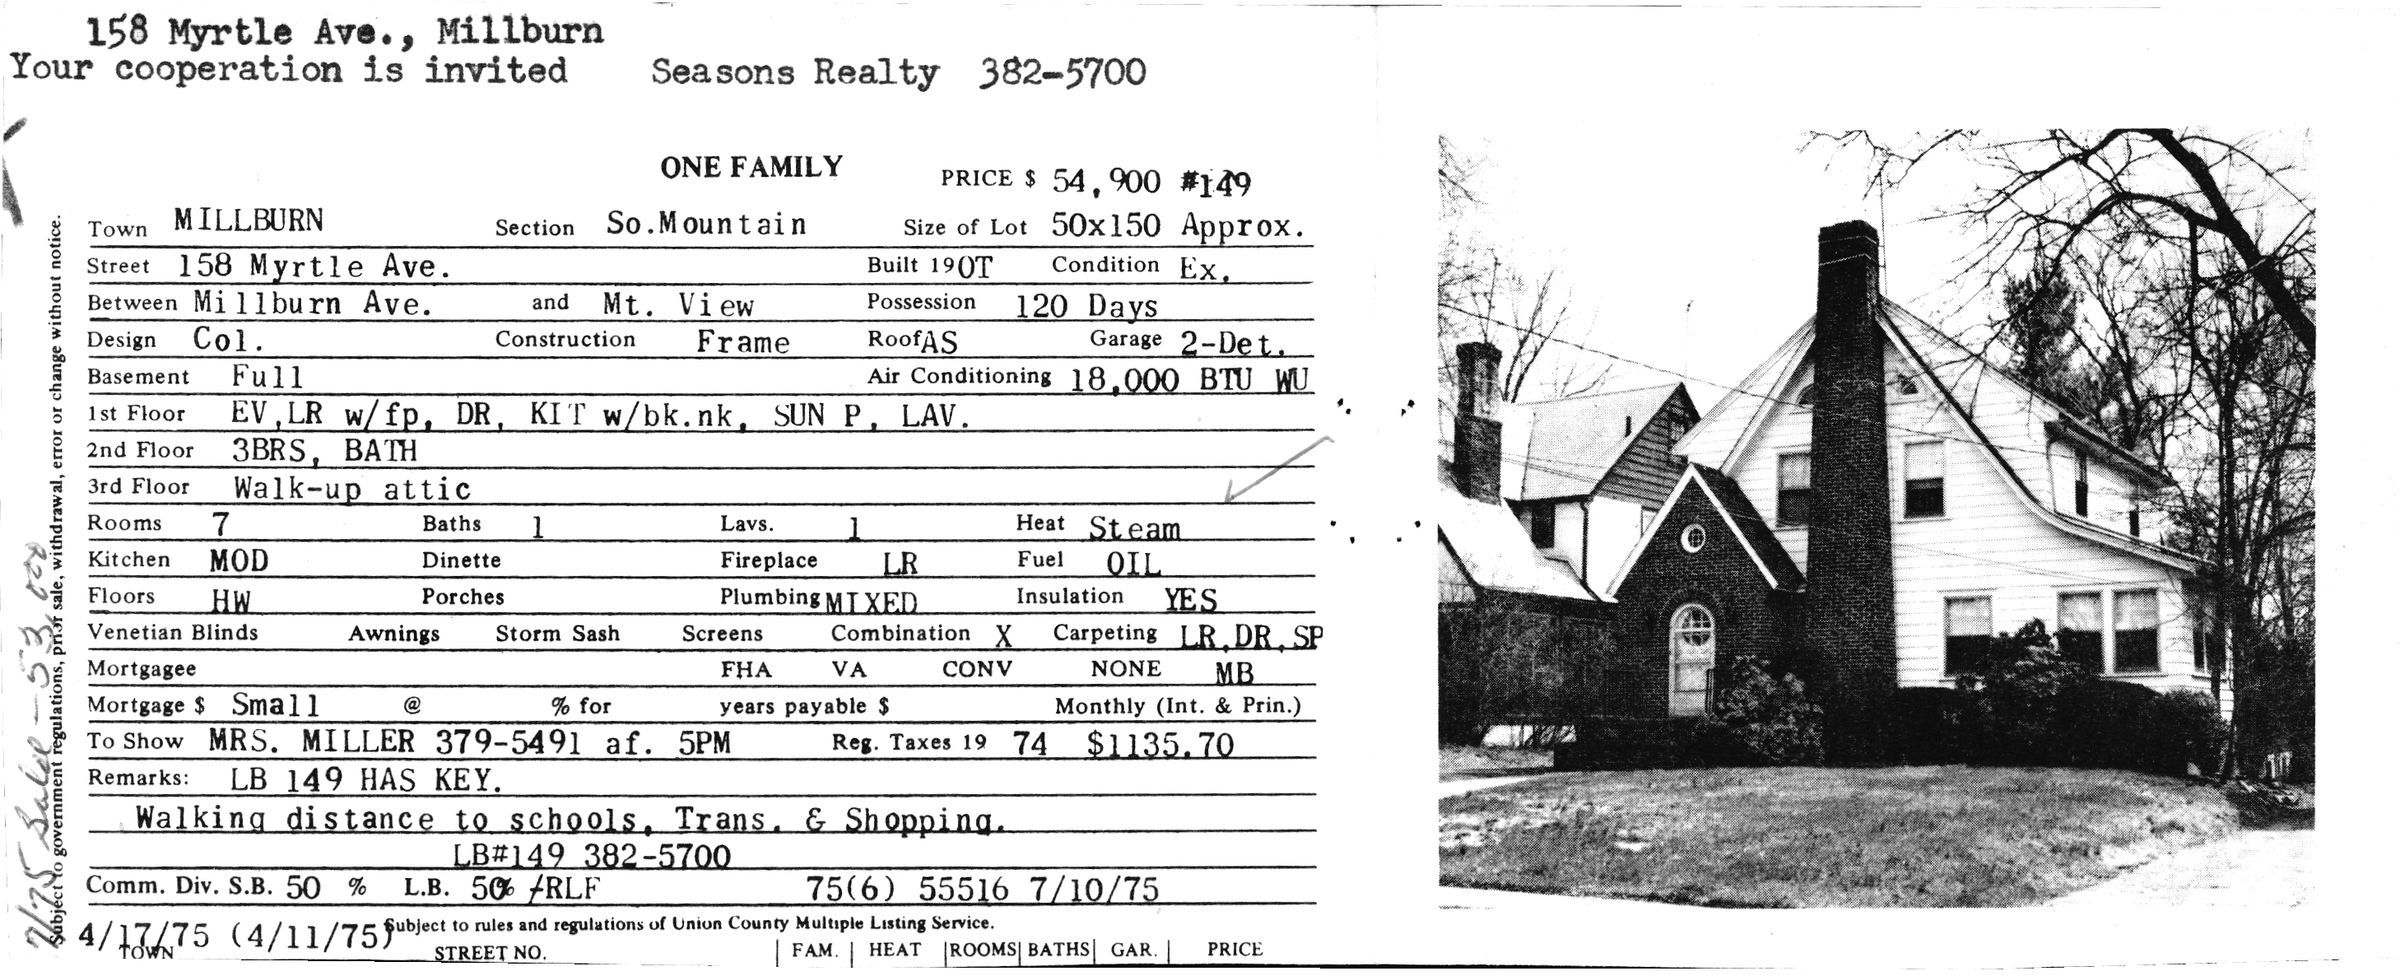 158 Myrtle Ave., Millburn
Your cooperation is invited Seasons Realty 382-5700
ONE FAMILY PRICE $ 54,900 #149
Town MILLBURN Section So.Mountain Size of Lot 50x150 Approx.
Street 158 Myrtle Ave. Built 19OT Condition Ex.
Between Millburn Ave. and Mt. View Possession 120 Days
Design Col. Construction Frame Roof AS Garage 2-Det.
Basement Full Air Conditioning 18,000 BTU WU
1st Floor EV,LR w/fp, DR, KIT w/bk.nk, SUN P, LAV.
2nd Floor 3BRS, BATH
3rd Floor Walk-up attic
Rooms 7 Baths 1 Lavs. 1 Heat Steam
Kitchen MOD Dinette Fireplace LR Fuel OIL
Floors HW Porches Plumbing MIXED Insulation YES
Venetian Blinds Awnings Storm Sash Screens Combination X Carpeting LR,DR,SP
Mortgagee FHA VA CONV NONE MB
Mortgage $ Small @ % for years payable $ Monthly (Int. & Prin.)
To Show MRS. MILLER 379-5491 af. 5PM Reg. Taxes 19 74 $1135.70
Remarks: LB 149 HAS KEY.
Walking distance to schools, Trans. & Shopping.
LB#149 382-5700
Comm. Div. S.B. 50 % L.B. 50% /RLF 75(6) 55516 7/10/75
4/17/75 (4/11/75) Subject to rules and regulations of Union County Multiple Listing Service.
TOWN STREET NO. FAM. HEAT ROOMS BATHS GAR. PRICE
Subject to government regulations, prior sale, withdrawal, error or change without notice.
7/75 Sale - 53,000